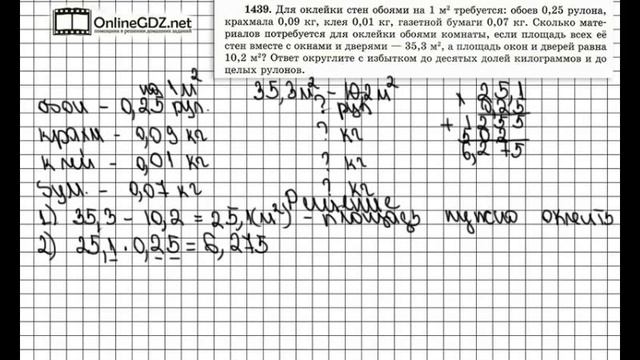 OnlineGDZ.net
помощники в решении домашних заданий
1439. Для оклейки стен обоями на 1 м² требуется: обоев 0,25 рулона,
крахмала 0,09 кг, клея 0,01 кг, газетной бумаги 0,07 кг. Сколько мате-
риалов потребуется для оклейки обоями комнаты, если площадь всех её
стен вместе с окнами и дверями — 35,3 м², а площадь окон и дверей равна
10,2 м²? Ответ округлите с избытком до десятых долей килограммов и до
целых рулонов.
на 1 м² 35,3 м² – 10,2 м²
обои – 0,25 рул. ? рул
крахм – 0,09 кг ? кг
клей – 0,01 кг ? кг
бум. – 0,07 кг ? кг
Решение
1) 35,3 – 10,2 = 25,1 (м²) – площадь нужно оклеить
2) 25,1 · 0,25 = 6,275
× 25,1
0,25
+ 1255
502
6,275